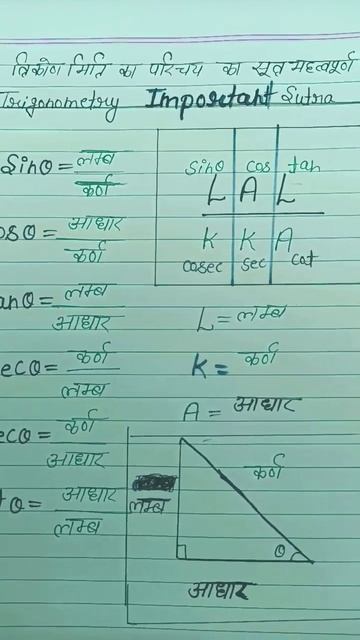 त्रिकोण मिति का परिचय का सूत्र महत्वपूर्ण
Trigonometry Important Sutra
Sinθ = लम्ब / कर्ण
osθ = आधार / कर्ण
anθ = लम्ब / आधार
ecθ = कर्ण / लम्ब
ecθ = कर्ण / आधार
θ = आधार / लम्ब
sinθ cos tan
L A L
K K A
cosec sec cot
L = लम्ब
K = कर्ण
A = आधार
कर्ण
लम्ब
θ
आधार